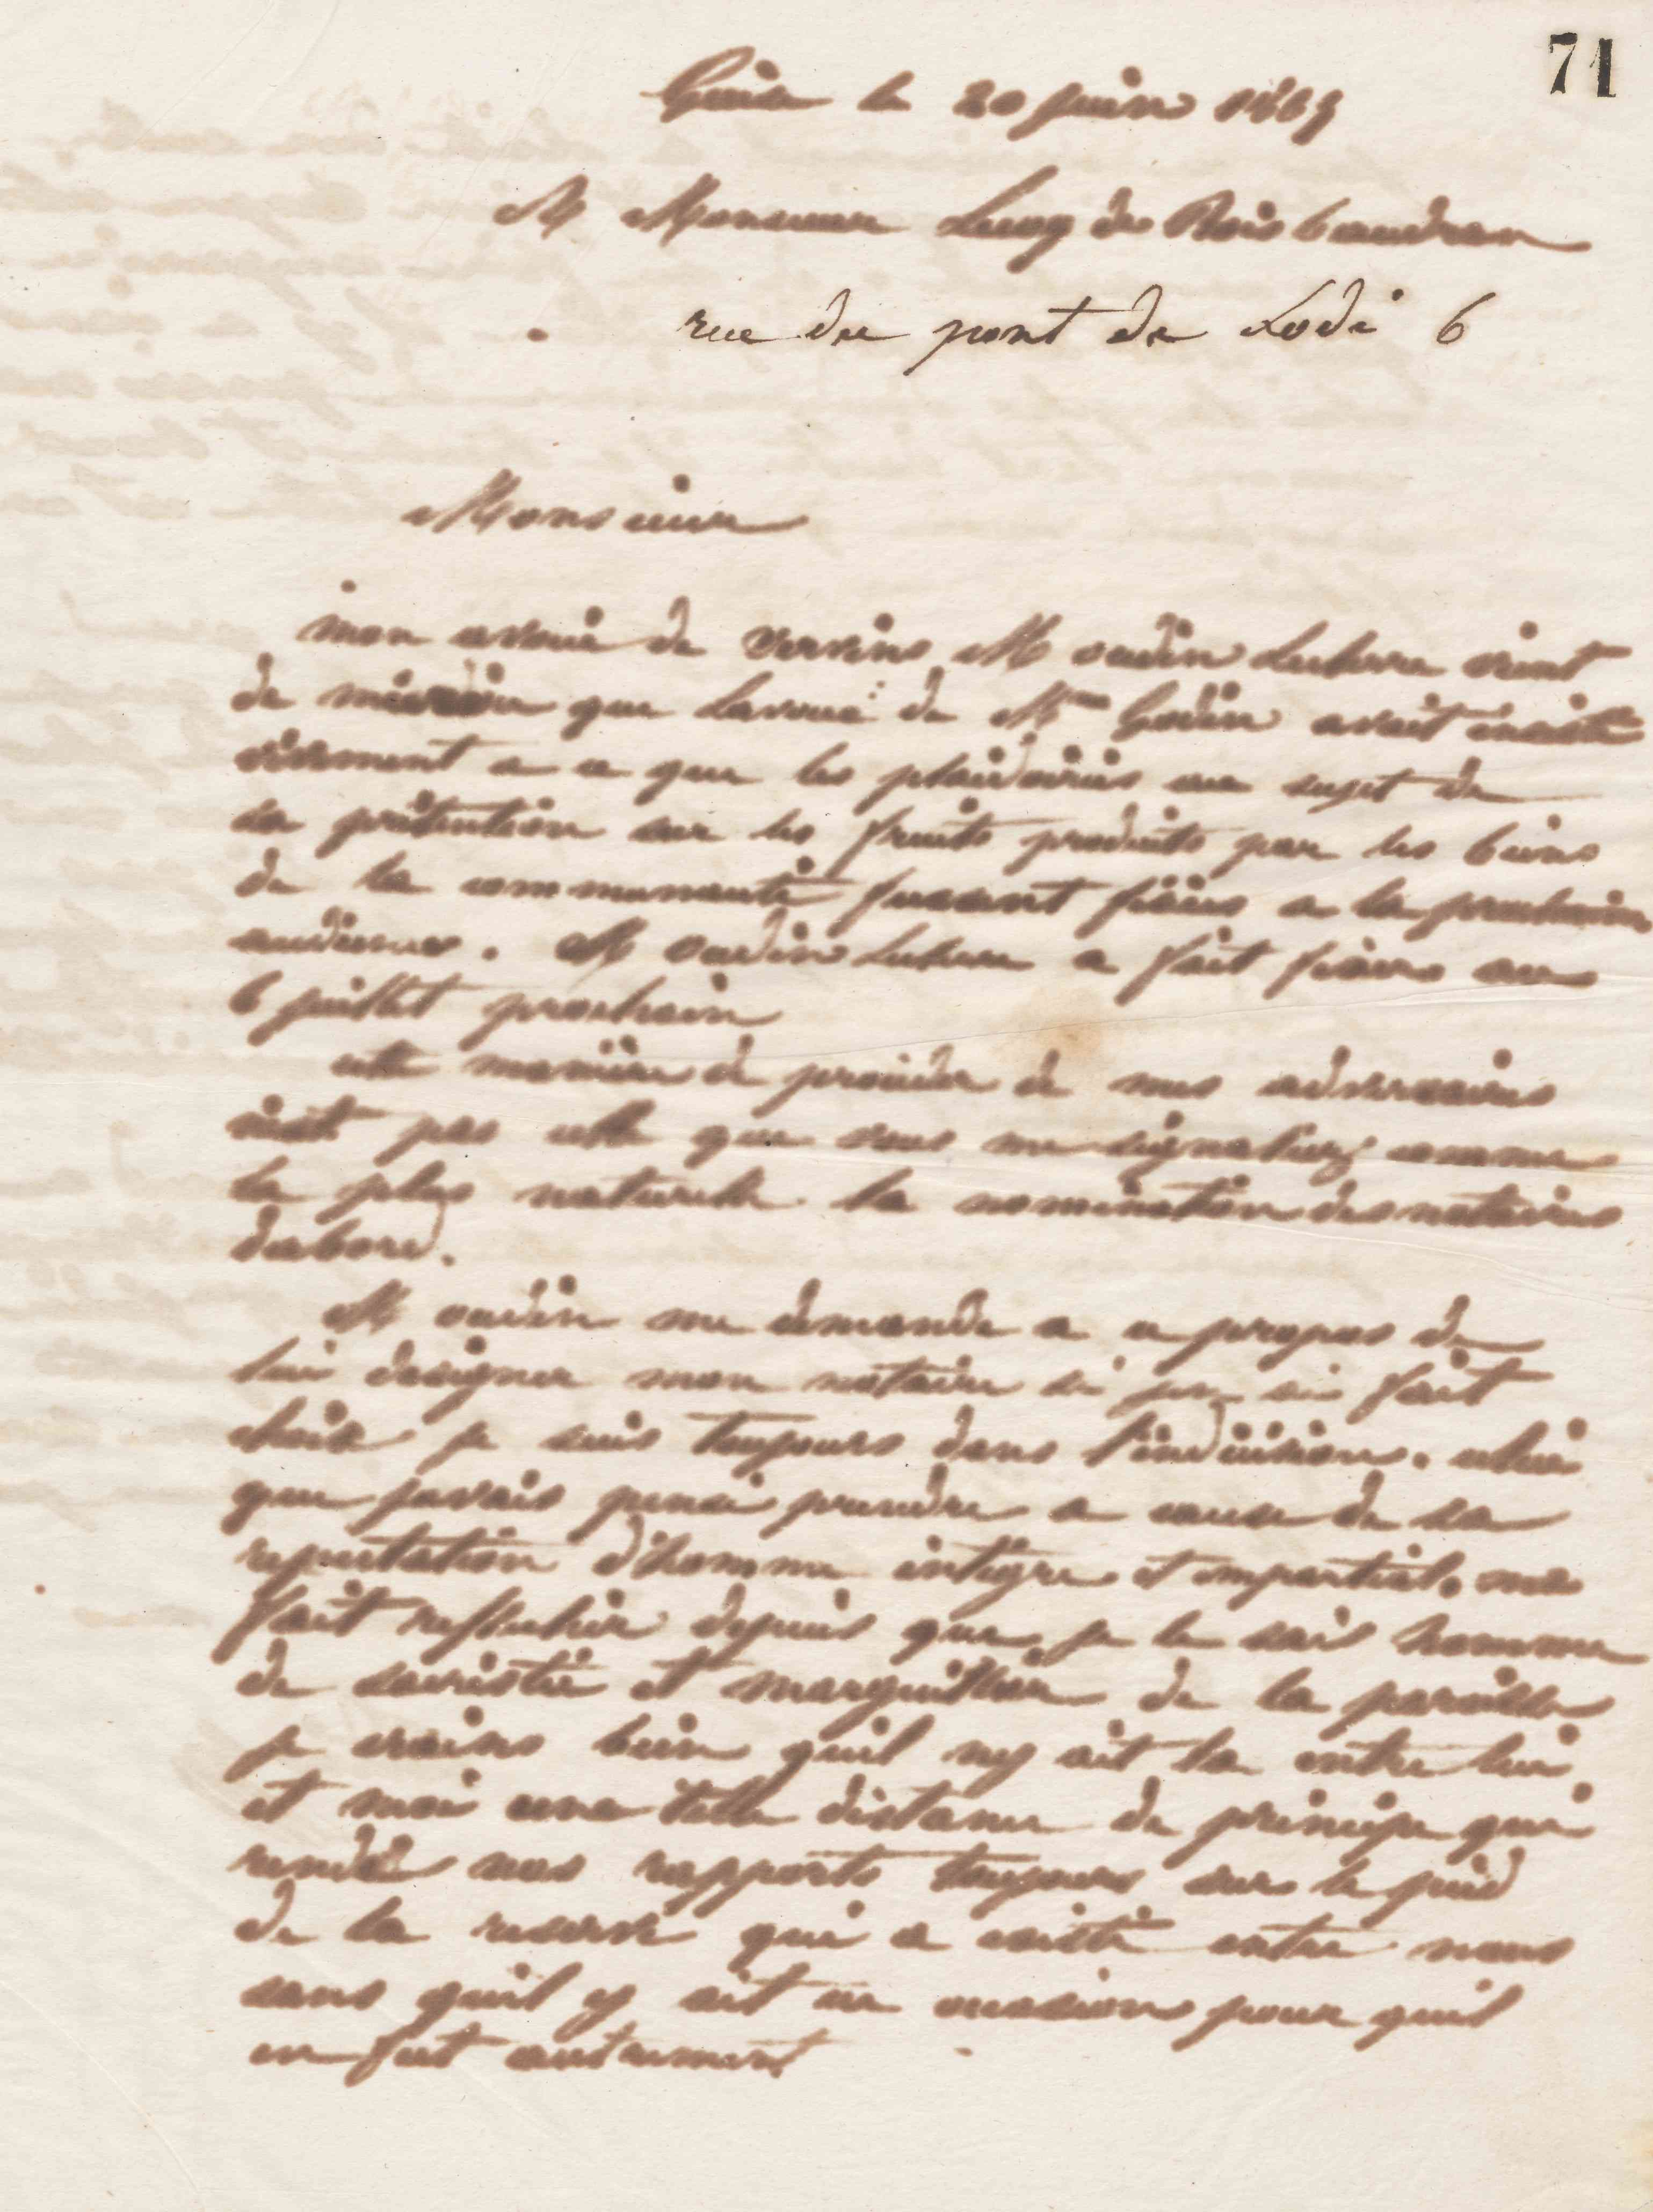 71
Guise le 20 juin 1865
A Monsieur Lecoq de Boisbaudran
rue du pont de Lodi 6
Monsieur
mon avoué de Vervins M oudin Leclerre vient
de m'écrire que lavoué de Mme Godin avait insisté
vivement a ce que les plaidoiries au sujet de
sa prétention sur les fruits produits par les biens
de la communauté fussent fixées a la prochaine
audience. M Oudin Leclerre a fait fixer au
6 juillet prochain
cette manière de procéder de nos adversaires
n'est pas celle que vous me signaliez comme
la plus naturelle la nomination des notaires
dabord.
M oudin me demande a ce propos de
lui designer mon notaire si j'en ai fait
choix je suis toujours dans l'indécision. celui
que javais pensé prendre a cause de sa
reputation d'homme intègre et impartial. me
fait reflechir depuis que je le sais homme
de sacristie et marguillier de la paroisse
je crains bien quil ny ait la entre lui
et moi une telle distance de principe qui
rende nos rapports toujours sur le pied
de la reserve qui a existé entre nous
sans quil y ait eu occasion pour quil
en fut autrement